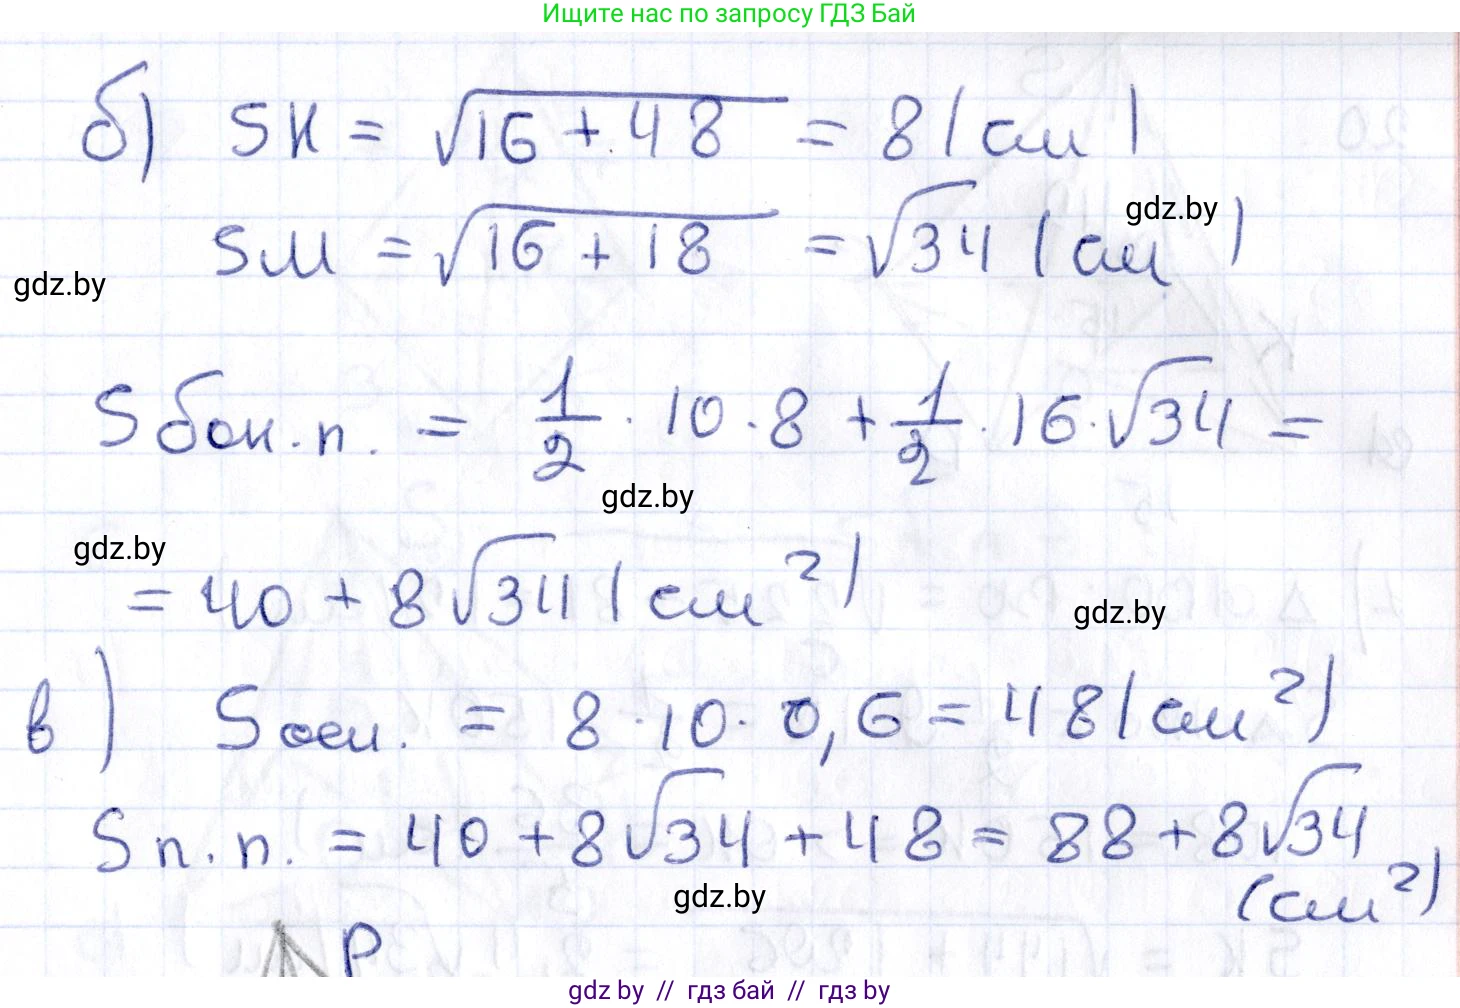 Ищите нас по запросу ГДЗ Бай
б) SK = √16 + 48 = 8 (см)
gdz.by
SM = √16 + 18 = √34 (см)
gdz.by
Sбок.п. = 1/2 · 10 · 8 + 1/2 · 16 · √34 =
gdz.by
gdz.by
= 40 + 8√34 (см²)
gdz.by
в) Sосн. = 8 · 10 · 0,6 = 48 (см²)
Sп.п. = 40 + 8√34 + 48 = 88 + 8√34
(см²)
gdz.by
P
gdz by // гдз бай // гдз by